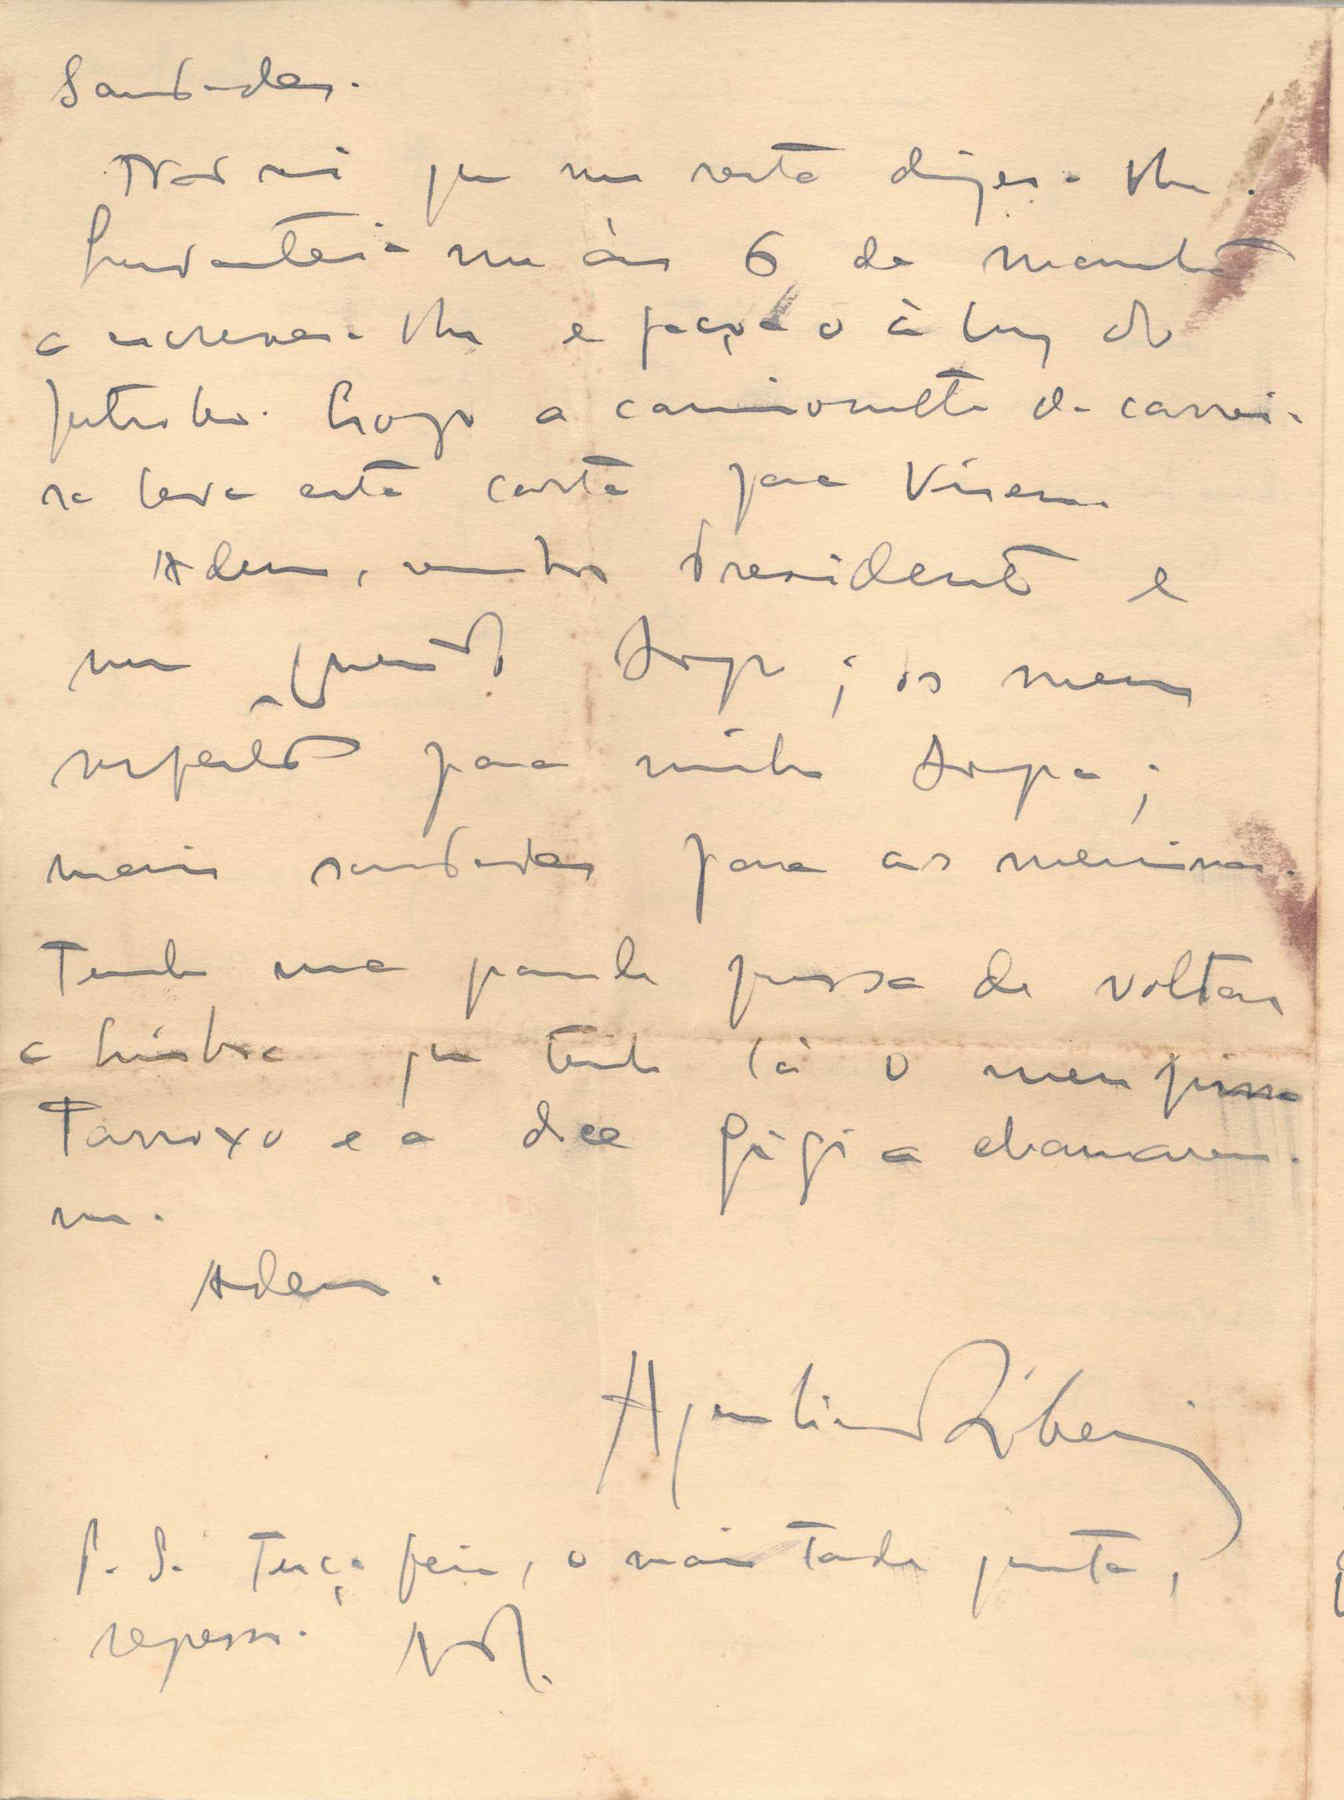 Saudades.
Não sei que me resta dizer-lhe.
Levantei-me às 6 da manhã
a escrever-lhe e faço-o à luz do
petroleo. Logo a camionette da carrei-
ra leva esta carta para Viseu
Adeus, meu Presidente e
meu querido amigo; os meus
respeitos para minha amiga;
mais saudades para as meninas.
Tenho uma grande pressa de voltar
a Lisboa que tenho lá o meu
Tarroxo e a doce Gigi a chamarem-
me.
Adeus.
Aquilino Ribeiro
P. S. Terça feira, o mais tarde quarta,
regresso.